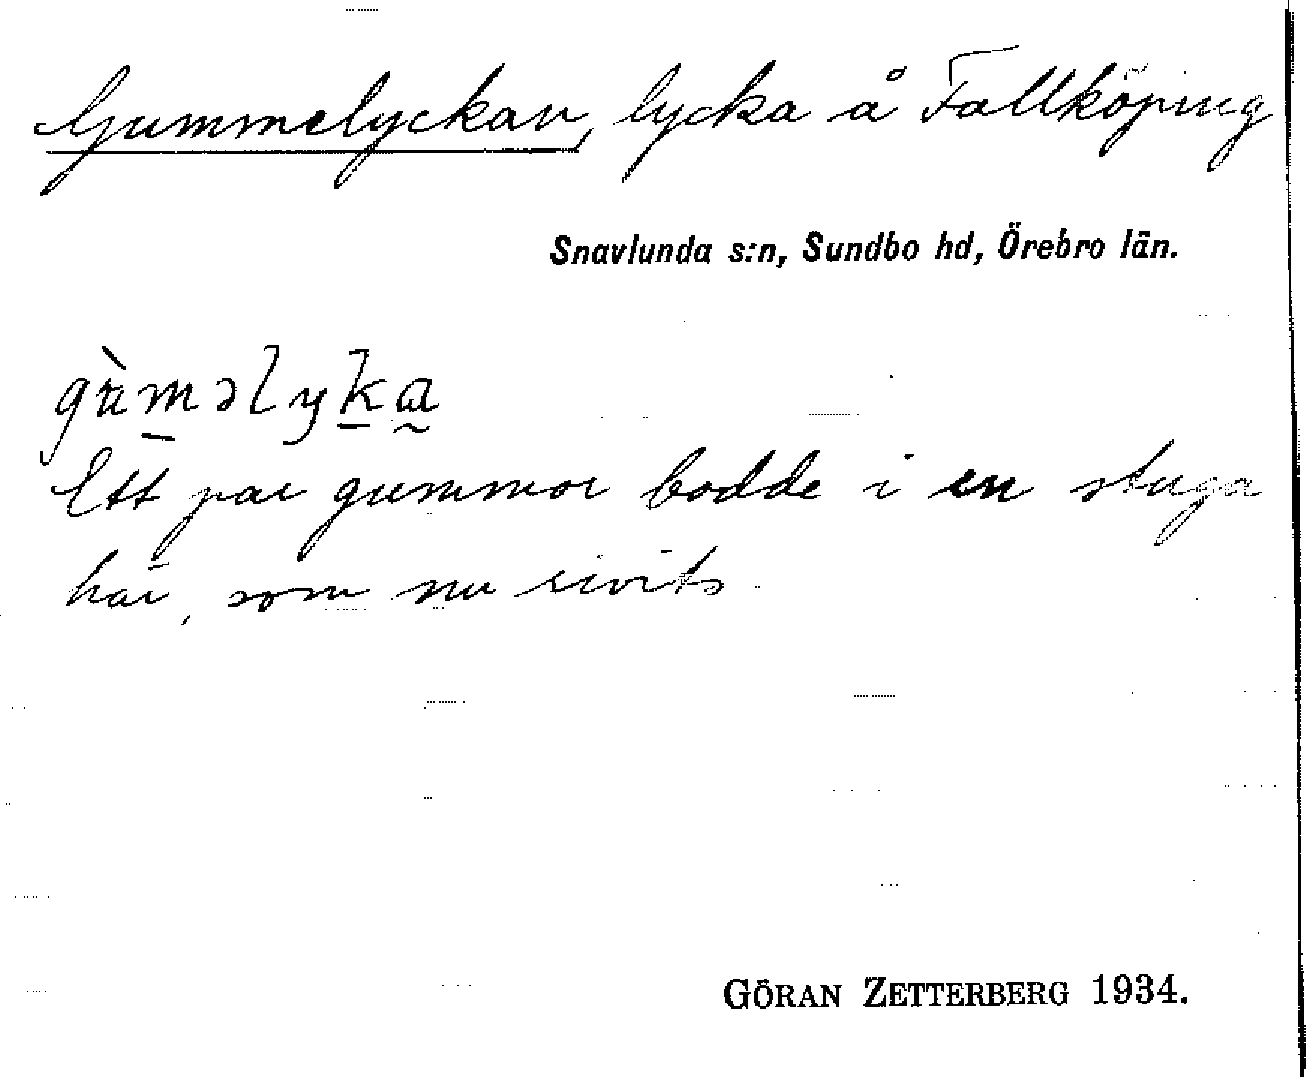 Gummelyckan, lycka å Fallköping
Snavlunda s:n, Sundbo hd, Örebro län.
gùməlyka
Ett par gummor bodde i en stuga
här, som nu rivits
GÖRAN ZETTERBERG 1934.